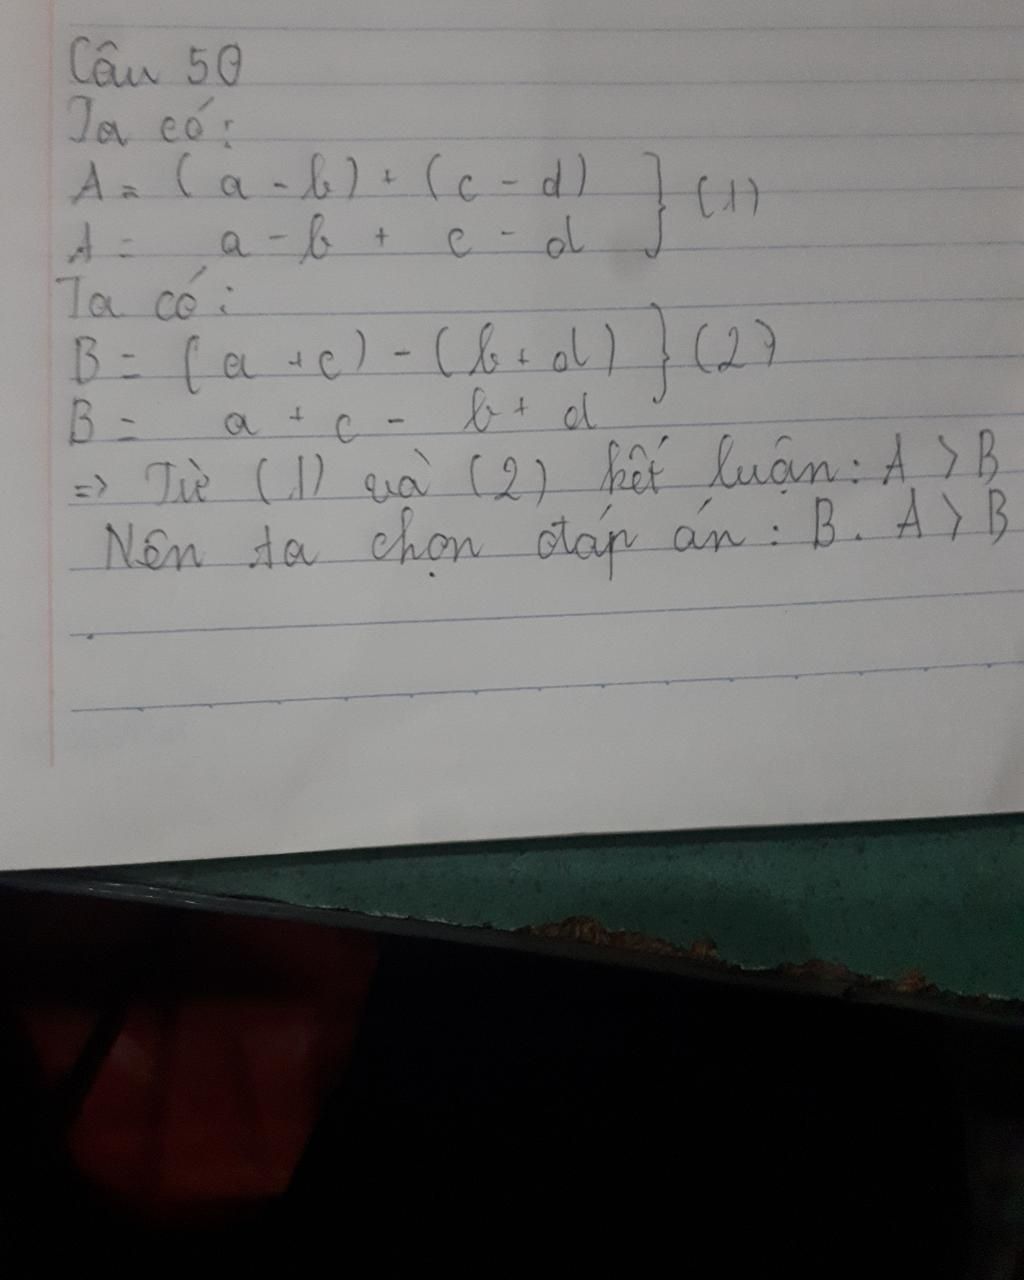 Câu 50
Ta có:
A = (a - b) + (c - d) } (1)
A = a - b + c - d
Ta có:
B = (a + c) - (b + d) } (2)
B = a + c - b + d
=> Từ (1) và (2) kết luận: A > B
Nên ta chọn đáp án: B. A > B